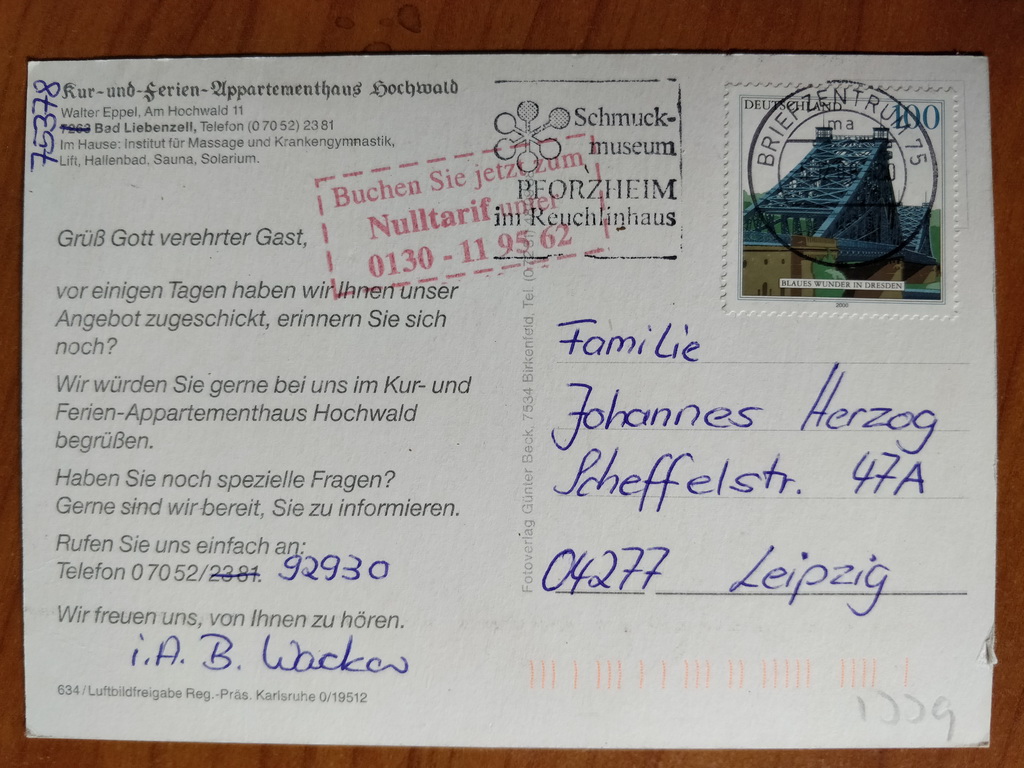 75378
Kur-und-Ferien-Appartementhaus Hochwald
Walter Eppel, Am Hochwald 11
7263 Bad Liebenzell, Telefon (0 70 52) 23 81
Im Hause: Institut für Massage und Krankengymnastik,
Lift, Hallenbad, Sauna, Solarium.
Buchen Sie jetzt zum
Nulltarif unter
0130 - 11 95 62
Schmuck-
museum
PFORZHEIM
im Reuchlinhaus
DEUTSCHLAND 100
BLAUES WUNDER IN DRESDEN
2000
BRIEFZENTRUM 75
ma
Grüß Gott verehrter Gast,
vor einigen Tagen haben wir Ihnen unser
Angebot zugeschickt, erinnern Sie sich
noch?
Wir würden Sie gerne bei uns im Kur- und
Ferien-Appartementhaus Hochwald
begrüßen.
Haben Sie noch spezielle Fragen?
Gerne sind wir bereit, Sie zu informieren.
Rufen Sie uns einfach an:
Telefon 0 70 52/23 81. 92930
Wir freuen uns, von Ihnen zu hören.
i.A. B. Wacker
634/Luftbildfreigabe Reg.-Präs. Karlsruhe 0/19512
Fotoverlag Günter Beck, 7534 Birkenfeld, Tel.
Familie
Johannes Herzog
Scheffelstr. 47A
04277 Leipzig